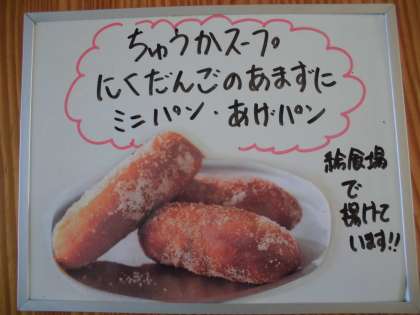 ちゅうかスープ
にくだんごのあまずに
ミニパン・あげパン
給食場
で
揚げて
います!!